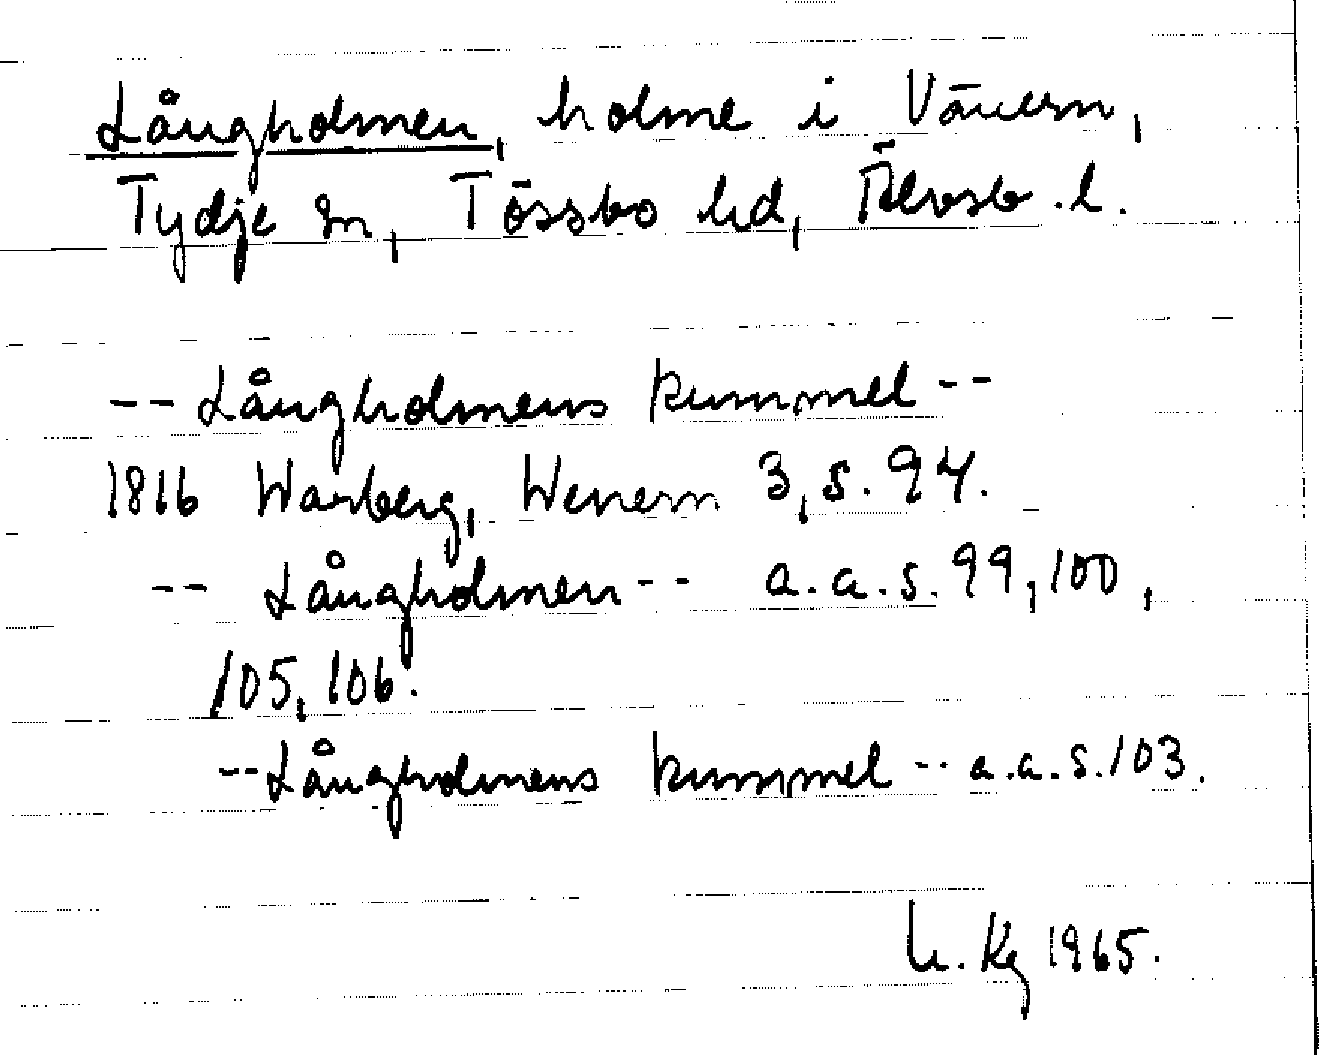 Långholmen, holme i Vänern,
Tydje sn, Tössbo hd, Älvsb. l.
-- Långholmens kummel --
1816 Warberg, Wenern 3, s. 94.
-- Långholmen -- a.a. s. 99, 100,
105, 106.
-- Långholmens kummel -- a.a. s. 103.
Kg 1965.